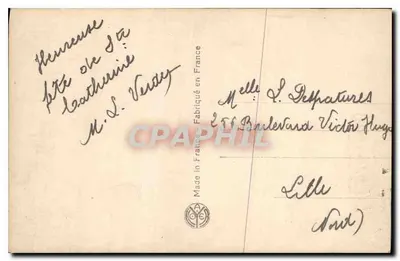 Heureuse
fête de Ste
Catherine
M. L. Verdey
Made in France - Fabriqué en France
Melle S. Despatures
Boulevard Victor Hugo
Lille
(Nord)
CPHARTIP.COM